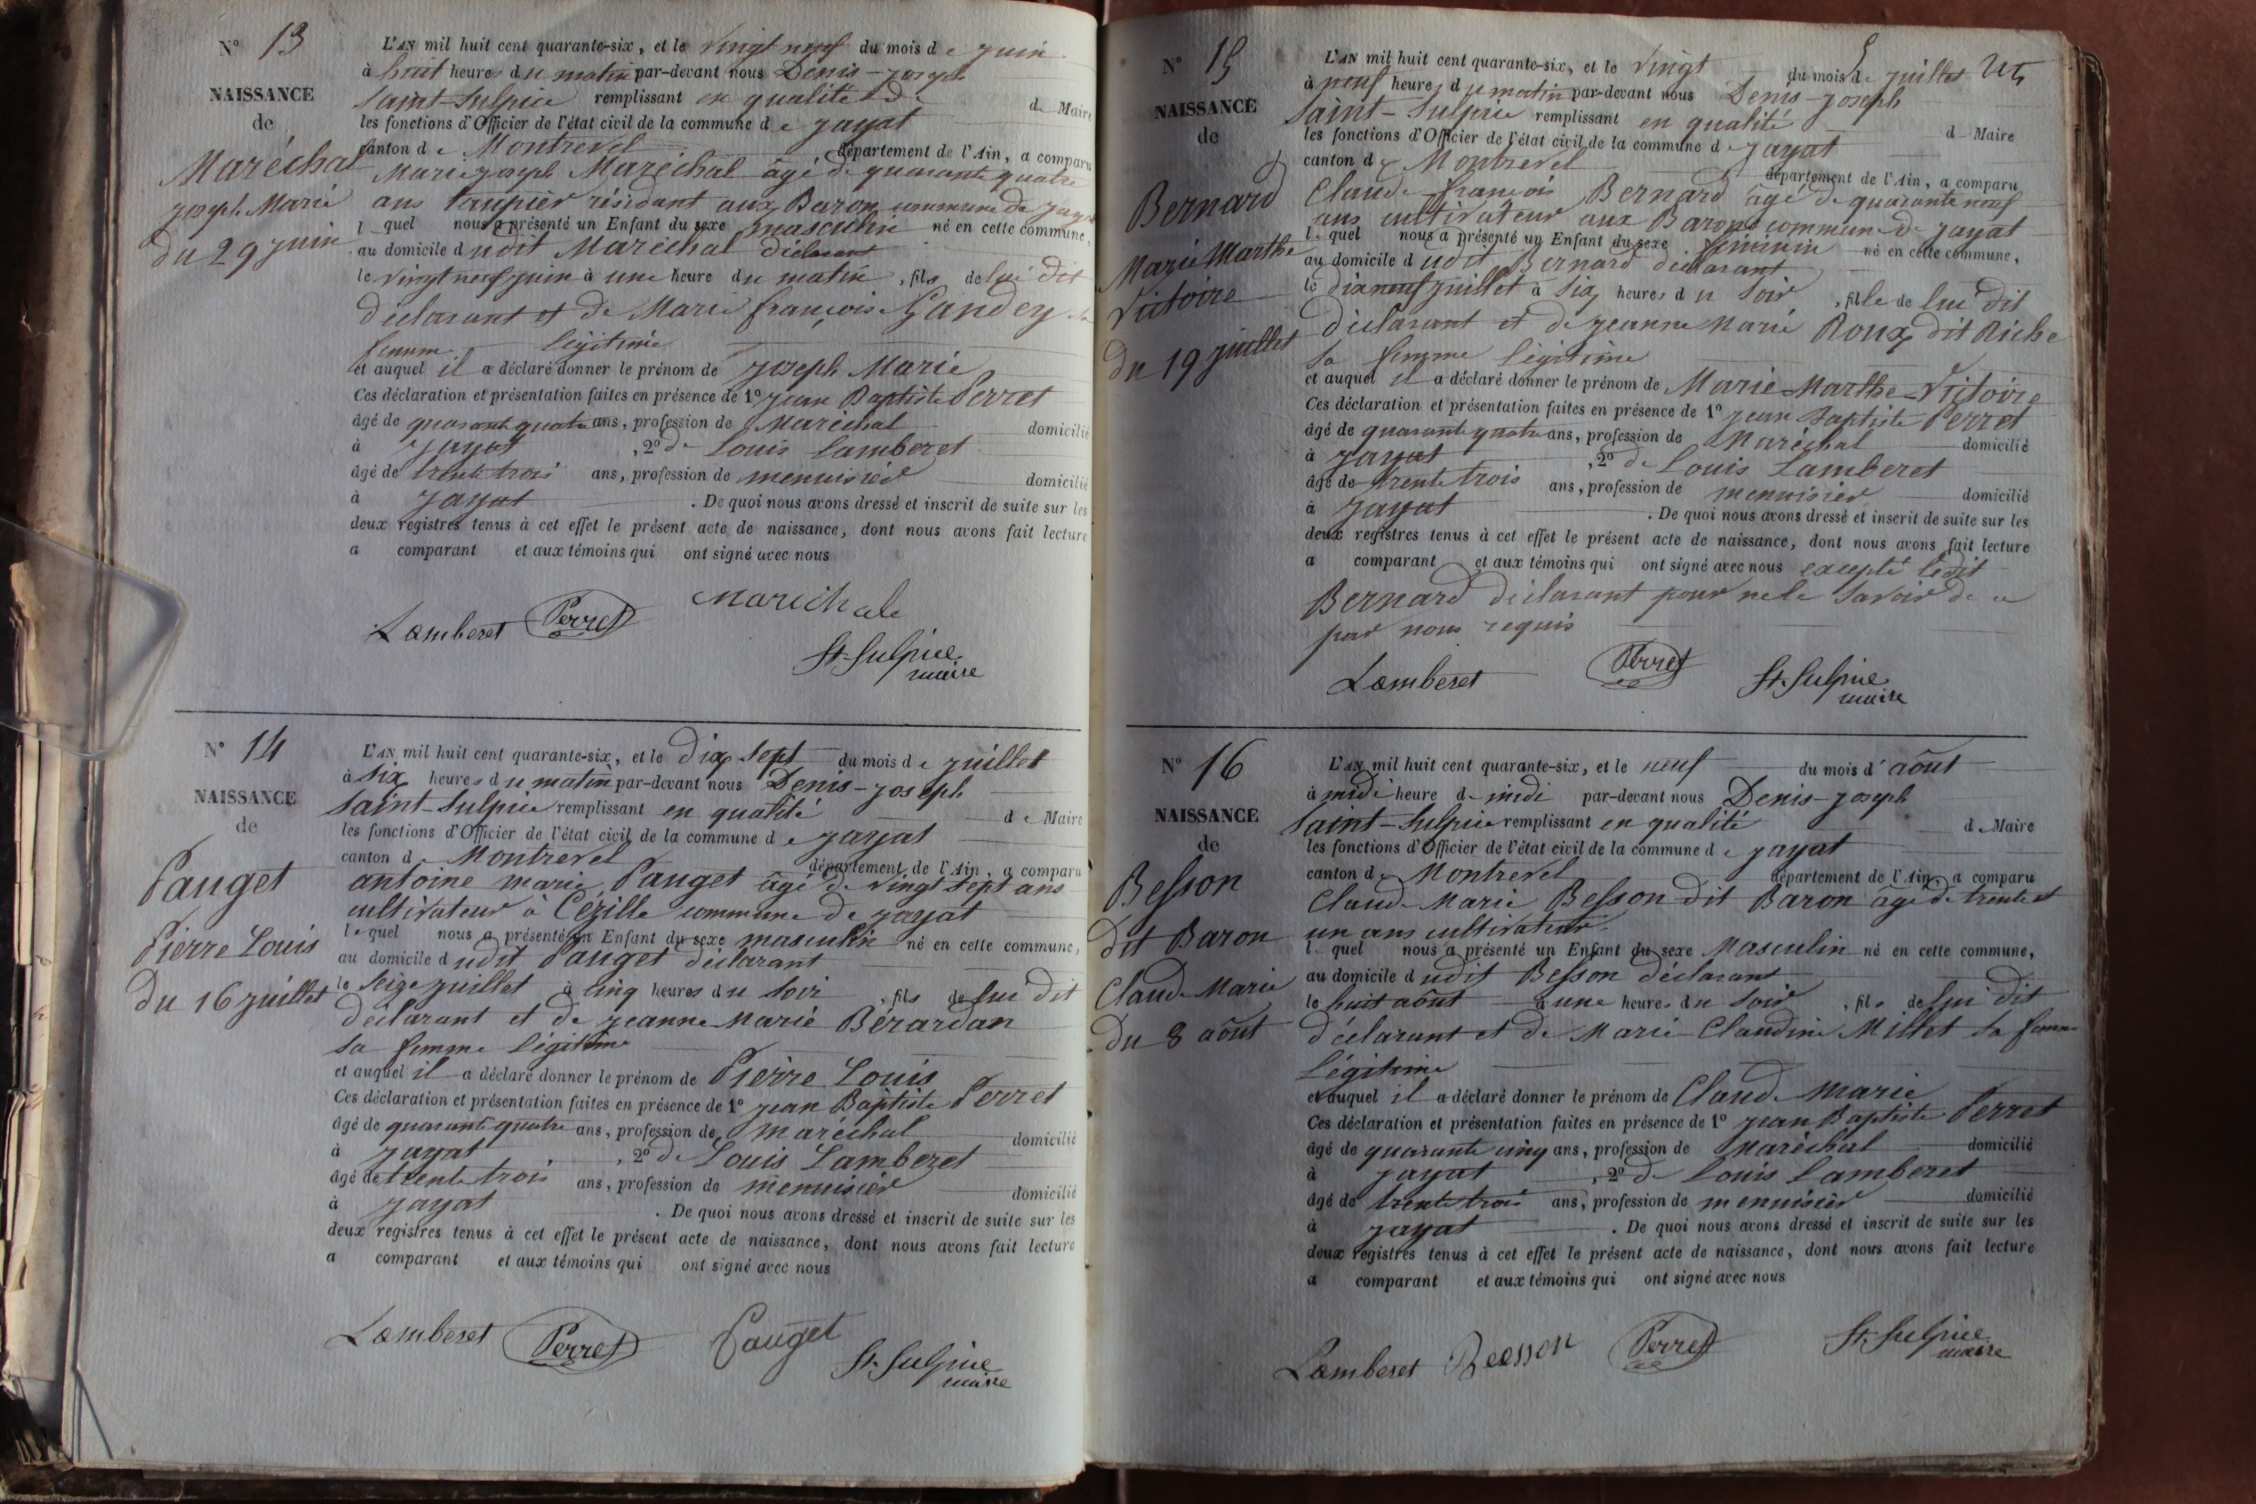 N° 13
NAISSANCE
de
Maréchal
joseph Marie
du 29 juin
L'AN mil huit cent quarante-six, et le vingt neuf du mois de juin
à huit heures du matin par-devant nous Denis-joseph
Saint-Sulpice remplissant en qualité de de Maire
les fonctions d'Officier de l'état civil de la commune de jayat
canton de Montrevel département de l'Ain, a comparu
Marie joseph Maréchal âgé de quarante quatre
ans taupier résidant aux Baron commune de jayat
lequel nous a présenté un Enfant du sexe masculin né en cette commune,
au domicile dudit Maréchal déclarant
le vingt neuf juin à une heure du matin, fils de lui dit
déclarant et de Marie françoise Gandey sa
femme légitime
et auquel il a déclaré donner le prénom de joseph Marie
Ces déclaration et présentation faites en présence de 1° jean Baptiste Perret
âgé de quarante quatre ans, profession de Maréchal domicilié
à jayat, 2° de Louis Lamberet
âgé de trente trois ans, profession de menuisier domicilié
à jayat. De quoi nous avons dressé et inscrit de suite sur les
deux registres tenus à cet effet le présent acte de naissance, dont nous avons fait lecture
a comparant et aux témoins qui ont signé avec nous
Marechale
Lamberet Perret
St-Sulpice
maire
N° 14
NAISSANCE
de
Pauget
Pierre Louis
du 16 juillet
L'AN mil huit cent quarante-six, et le dix sept du mois de juillet
à six heures du matin par-devant nous Denis-joseph
Saint-Sulpice remplissant en qualité de Maire
les fonctions d'Officier de l'état civil de la commune de jayat
canton de Montrevel département de l'Ain, a comparu
antoine marie Pauget âgé de vingt sept ans
cultivateur à Cézille commune de jayat
lequel nous a présenté un Enfant du sexe masculin né en cette commune,
au domicile dudit Pauget déclarant
le seize juillet à cinq heures du soir, fils de lui dit
déclarant et de jeanne Marie Bérardan
sa femme légitime
et auquel il a déclaré donner le prénom de Pierre Louis
Ces déclaration et présentation faites en présence de 1° jean Baptiste Perret
âgé de quarante quatre ans, profession de maréchal domicilié
à jayat, 2° de Louis Lamberet
âgé de trente trois ans, profession de menuisier domicilié
à jayat. De quoi nous avons dressé et inscrit de suite sur les
deux registres tenus à cet effet le présent acte de naissance, dont nous avons fait lecture
a comparant et aux témoins qui ont signé avec nous
Lamberet Perret Pauget
St-Sulpice
maire
N° 15
NAISSANCE
de
Bernard
Marie Marthe
Victoire
du 19 juillet
L'AN mil huit cent quarante-six, et le vingt du mois de juillet
à neuf heures du matin par-devant nous Denis-joseph
Saint-Sulpice remplissant en qualité de Maire
les fonctions d'Officier de l'état civil de la commune de jayat
canton de Montrevel département de l'Ain, a comparu
Claude françois Bernard âgé de quarante neuf
ans cultivateur aux Barons commune de jayat
lequel nous a présenté un Enfant du sexe féminin né en cette commune,
au domicile dudit Bernard déclarant
le dix neuf juillet à six heures du soir, fille de lui dit
déclarant et de jeanne Marie Roux dit Riche
sa femme légitime
et auquel il a déclaré donner le prénom de Marie-Marthe-Victoire
Ces déclaration et présentation faites en présence de 1° jean Baptiste Perret
âgé de quarante quatre ans, profession de Maréchal domicilié
à jayat, 2° de Louis Lamberet
âgé de trente trois ans, profession de menuisier domicilié
à jayat. De quoi nous avons dressé et inscrit de suite sur les
deux registres tenus à cet effet le présent acte de naissance, dont nous avons fait lecture
a comparant et aux témoins qui ont signé avec nous excepté ledit
Bernard déclarant pour ne le savoir de ce
par nous requis
Lamberet Perret St-Sulpice
maire
N° 16
NAISSANCE
de
Besson
dit Baron
Claude Marie
du 8 août
L'AN mil huit cent quarante-six, et le neuf du mois d'août
à midi heure de midi par-devant nous Denis-joseph
Saint-Sulpice remplissant en qualité de Maire
les fonctions d'Officier de l'état civil de la commune de jayat
canton de Montrevel département de l'Ain, a comparu
Claude Marie Besson dit Baron âgé de trente et
un ans cultivateur
lequel nous a présenté un Enfant du sexe Masculin né en cette commune,
au domicile dudit Besson déclarant
le huit août à une heure du soir, fils de lui dit
déclarant et de Marie Claudine Millet sa femme
légitime
et auquel il a déclaré donner le prénom de Claude Marie
Ces déclaration et présentation faites en présence de 1° jean Baptiste Perret
âgé de quarante cinq ans, profession de Maréchal domicilié
à jayat, 2° de Louis Lamberet
âgé de trente trois ans, profession de menuisier domicilié
à jayat. De quoi nous avons dressé et inscrit de suite sur les
deux registres tenus à cet effet le présent acte de naissance, dont nous avons fait lecture
a comparant et aux témoins qui ont signé avec nous
Lamberet Beesson Perret St-Sulpice
maire